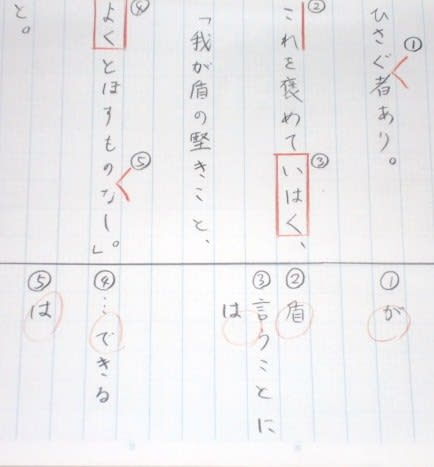 ①
ひさぐ者あり。
②
これを褒めていはく、
③
「我が盾の堅きこと、
④
よくとほすものなし」。
⑤
と。
①が
②盾
③言うことに
は
④…できる
⑤は